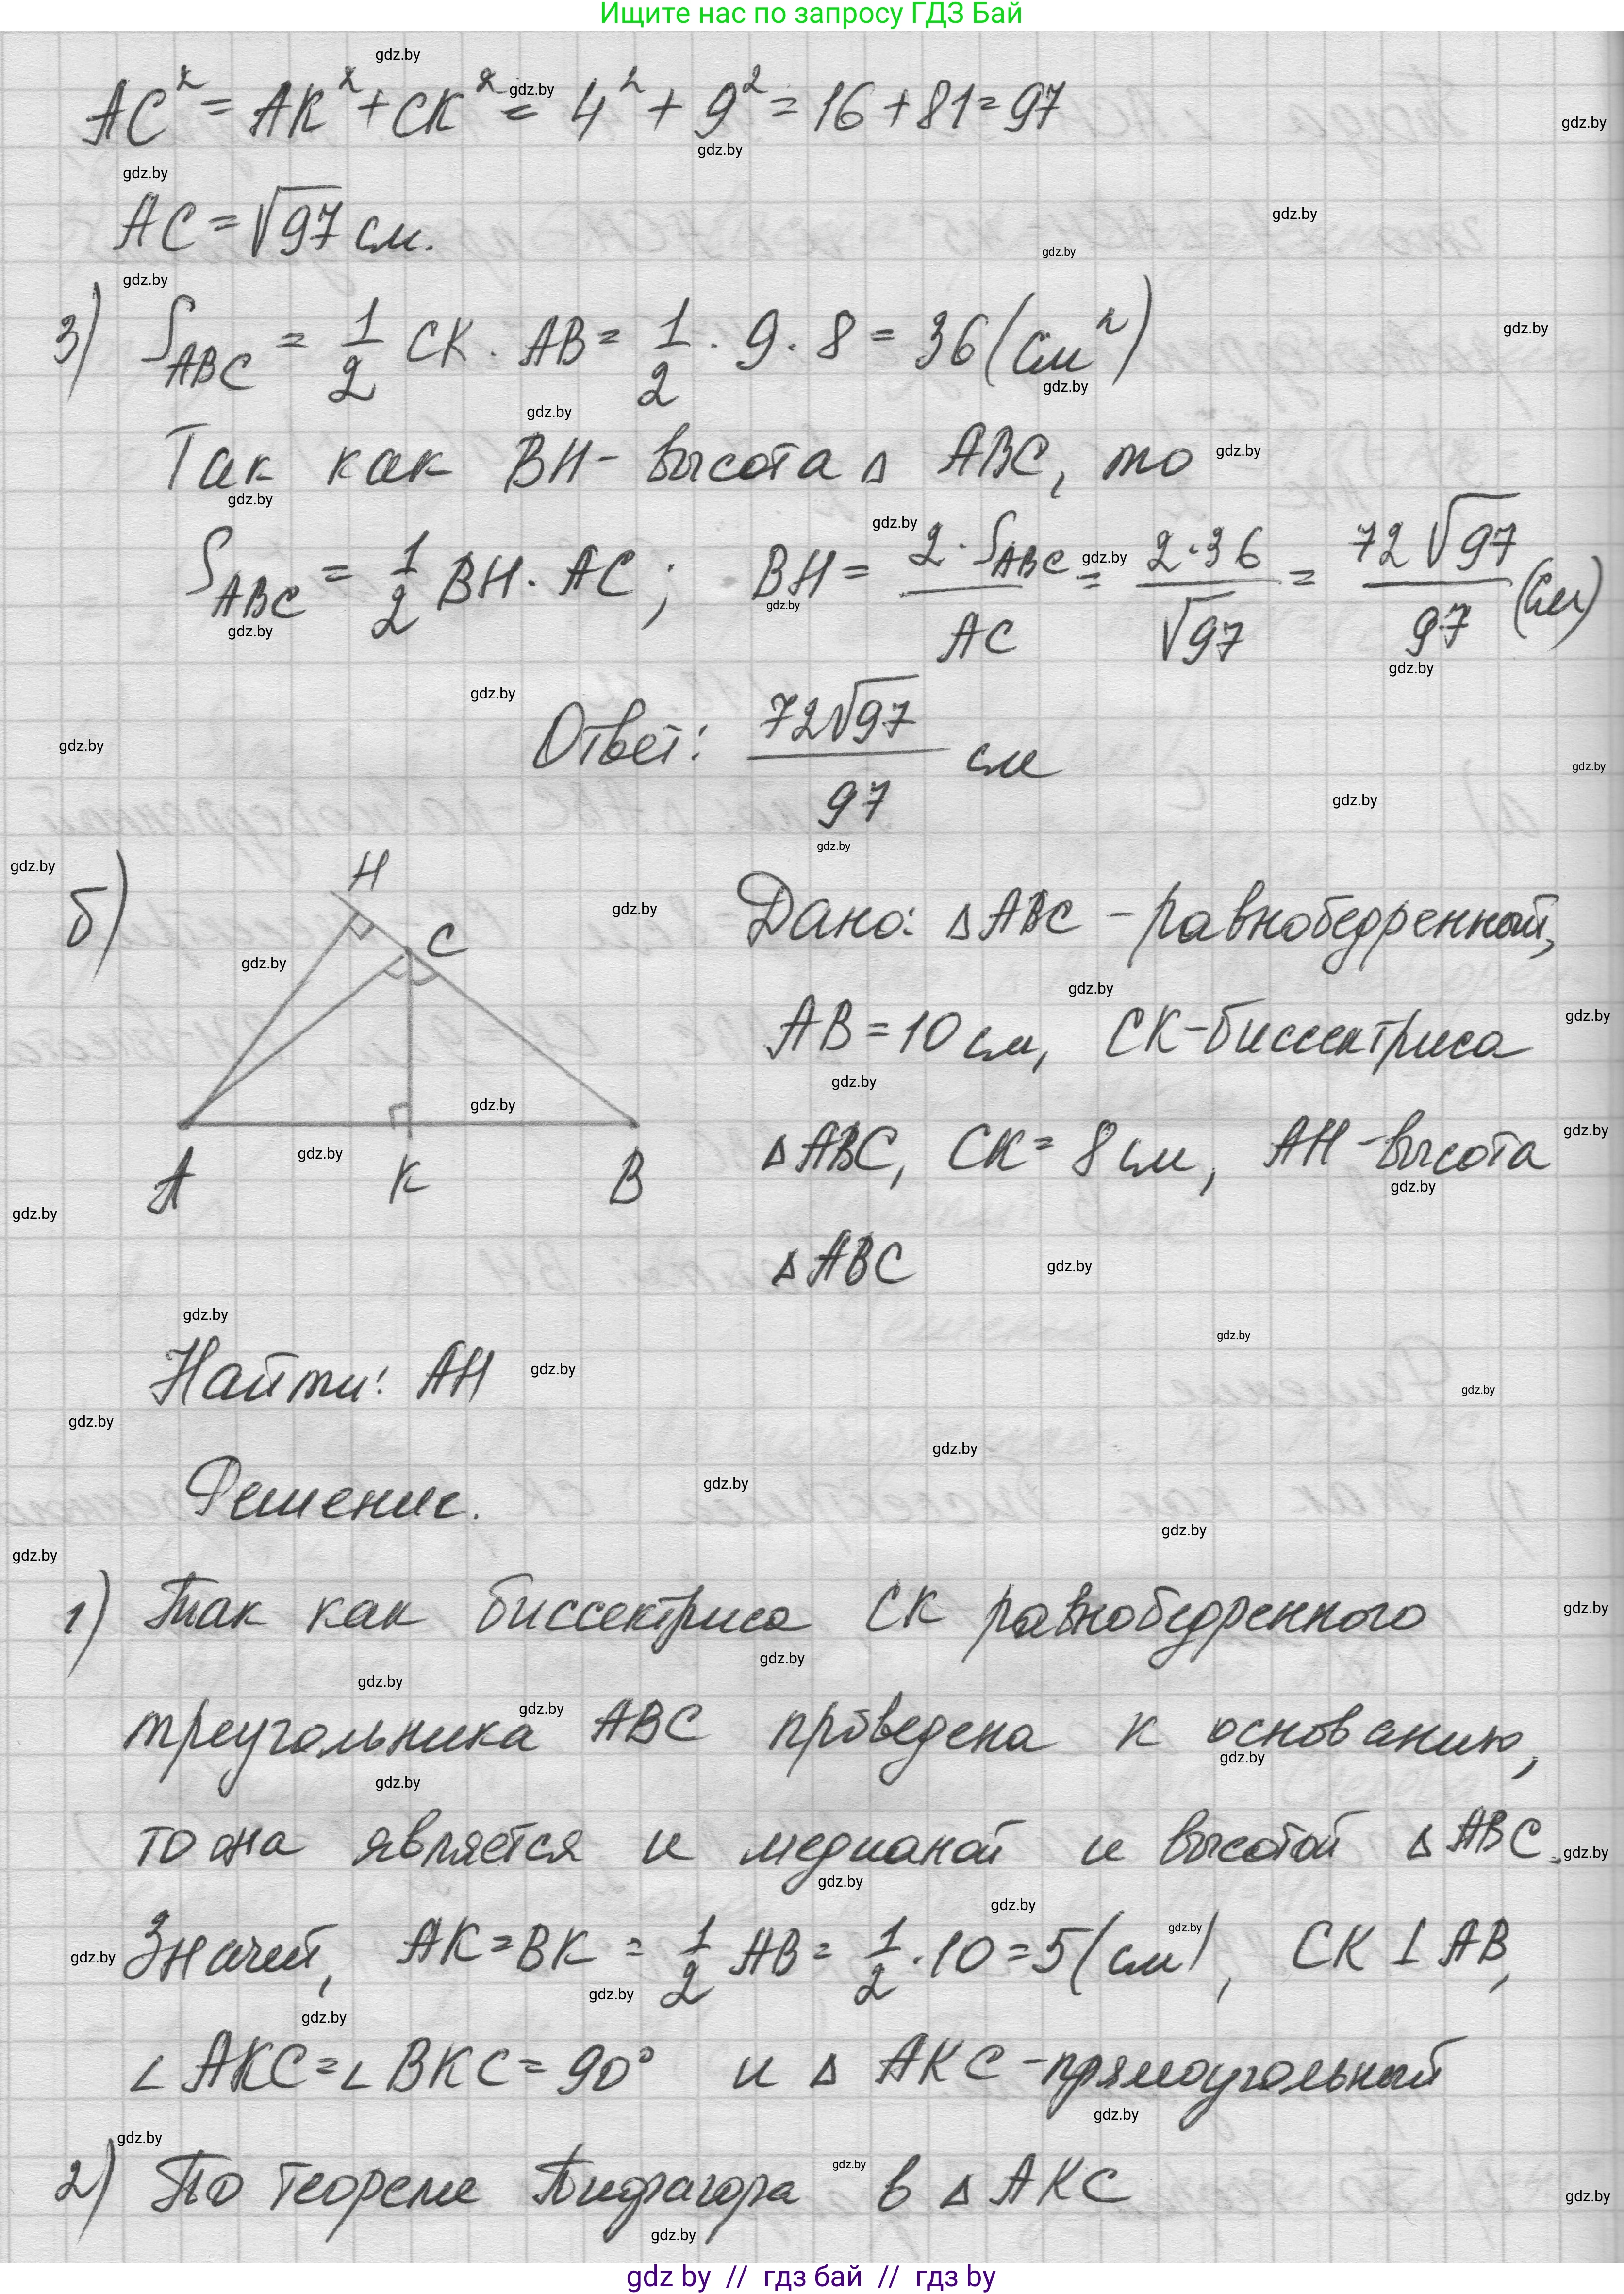 Ищите нас по запросу ГДЗ Бай
AC² = AK² + CK² = 4² + 9² = 16 + 81 = 97
AC = √97 см.
3) S_ABC = 1/2 CK · AB = 1/2 · 9 · 8 = 36 (см²)
Так как BH - высота Δ ABC, то
S_ABC = 1/2 BH · AC; BH = 2·S_ABC/AC = 2·36/√97 = 72√97/97 (см)
Ответ: 72√97/97 см
б)
H
C
A K B
Дано: Δ ABC - равнобедренный,
AB = 10 см, CK - биссектриса
Δ ABC, CK = 8 см, AH - высота
Δ ABC
Найти: AH
Решение.
1) Так как биссектриса CK равнобедренного
треугольника ABC проведена к основанию,
то она является и медианой и высотой Δ ABC.
Значит, AK = BK = 1/2 AB = 1/2 · 10 = 5 (см), CK ⊥ AB,
∠ AKC = ∠ BKC = 90° и Δ AKC - прямоугольный
2) По теореме Пифагора в Δ AKC
gdz by // гдз бай // гдз by